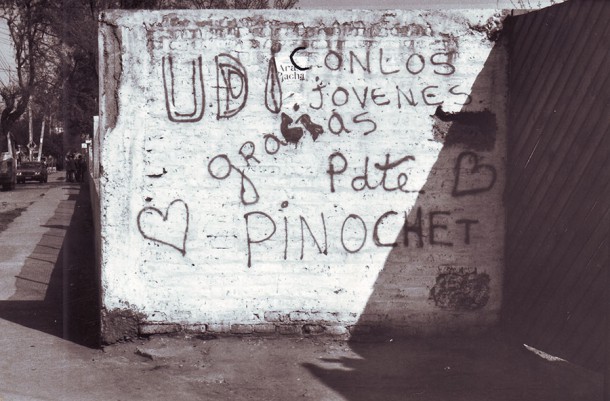 UDI CON LOS
JOVENES
gracias
Pdte
PINOCHET